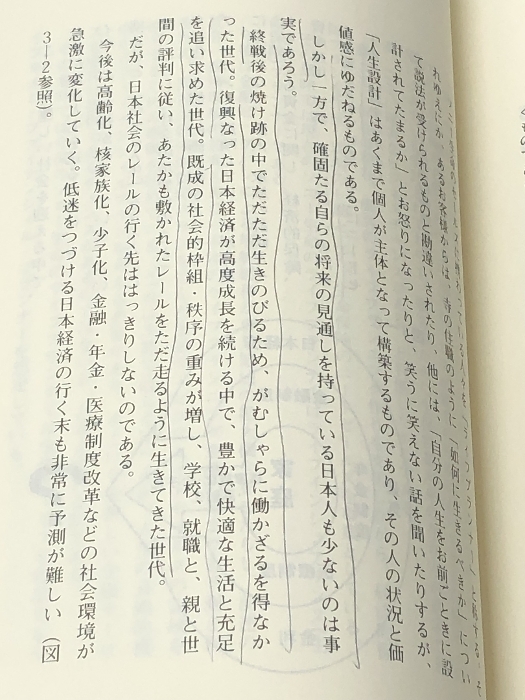 れゆえにか、あるお客様からは、寺の住職のように「如何に生きるべきか」につい
て説法が受けられるものと勘違いされたり、他には、「自分の人生をお前ごときに設
計されてたまるか」とお怒りになったりと、笑うに笑えない話を聞いたりするが、
「人生設計」はあくまで個人が主体となって構築するものであり、その人の状況と価
値感にゆだねるものである。
しかし一方で、確固たる自らの将来の見通しを持っている日本人も少ないのは事
実であろう。
終戦後の焼け跡の中でただただ生きのびるため、がむしゃらに働かざるを得なか
った世代。復興なった日本経済が高度成長を続ける中で、豊かで快適な生活と充足
を追い求めた世代。既成の社会的枠組・秩序の重みが増し、学校、就職と、親と世
間の評判に従い、あたかも敷かれたレールをただ走るように生きてきた世代。
だが、日本社会のレールの行く先ははっきりしないのである。
今後は高齢化、核家族化、少子化、金融・年金・医療制度改革などの社会環境が
急激に変化していく。低迷をつづける日本経済の行く末も非常に予測が難しい（図
3―2参照）。